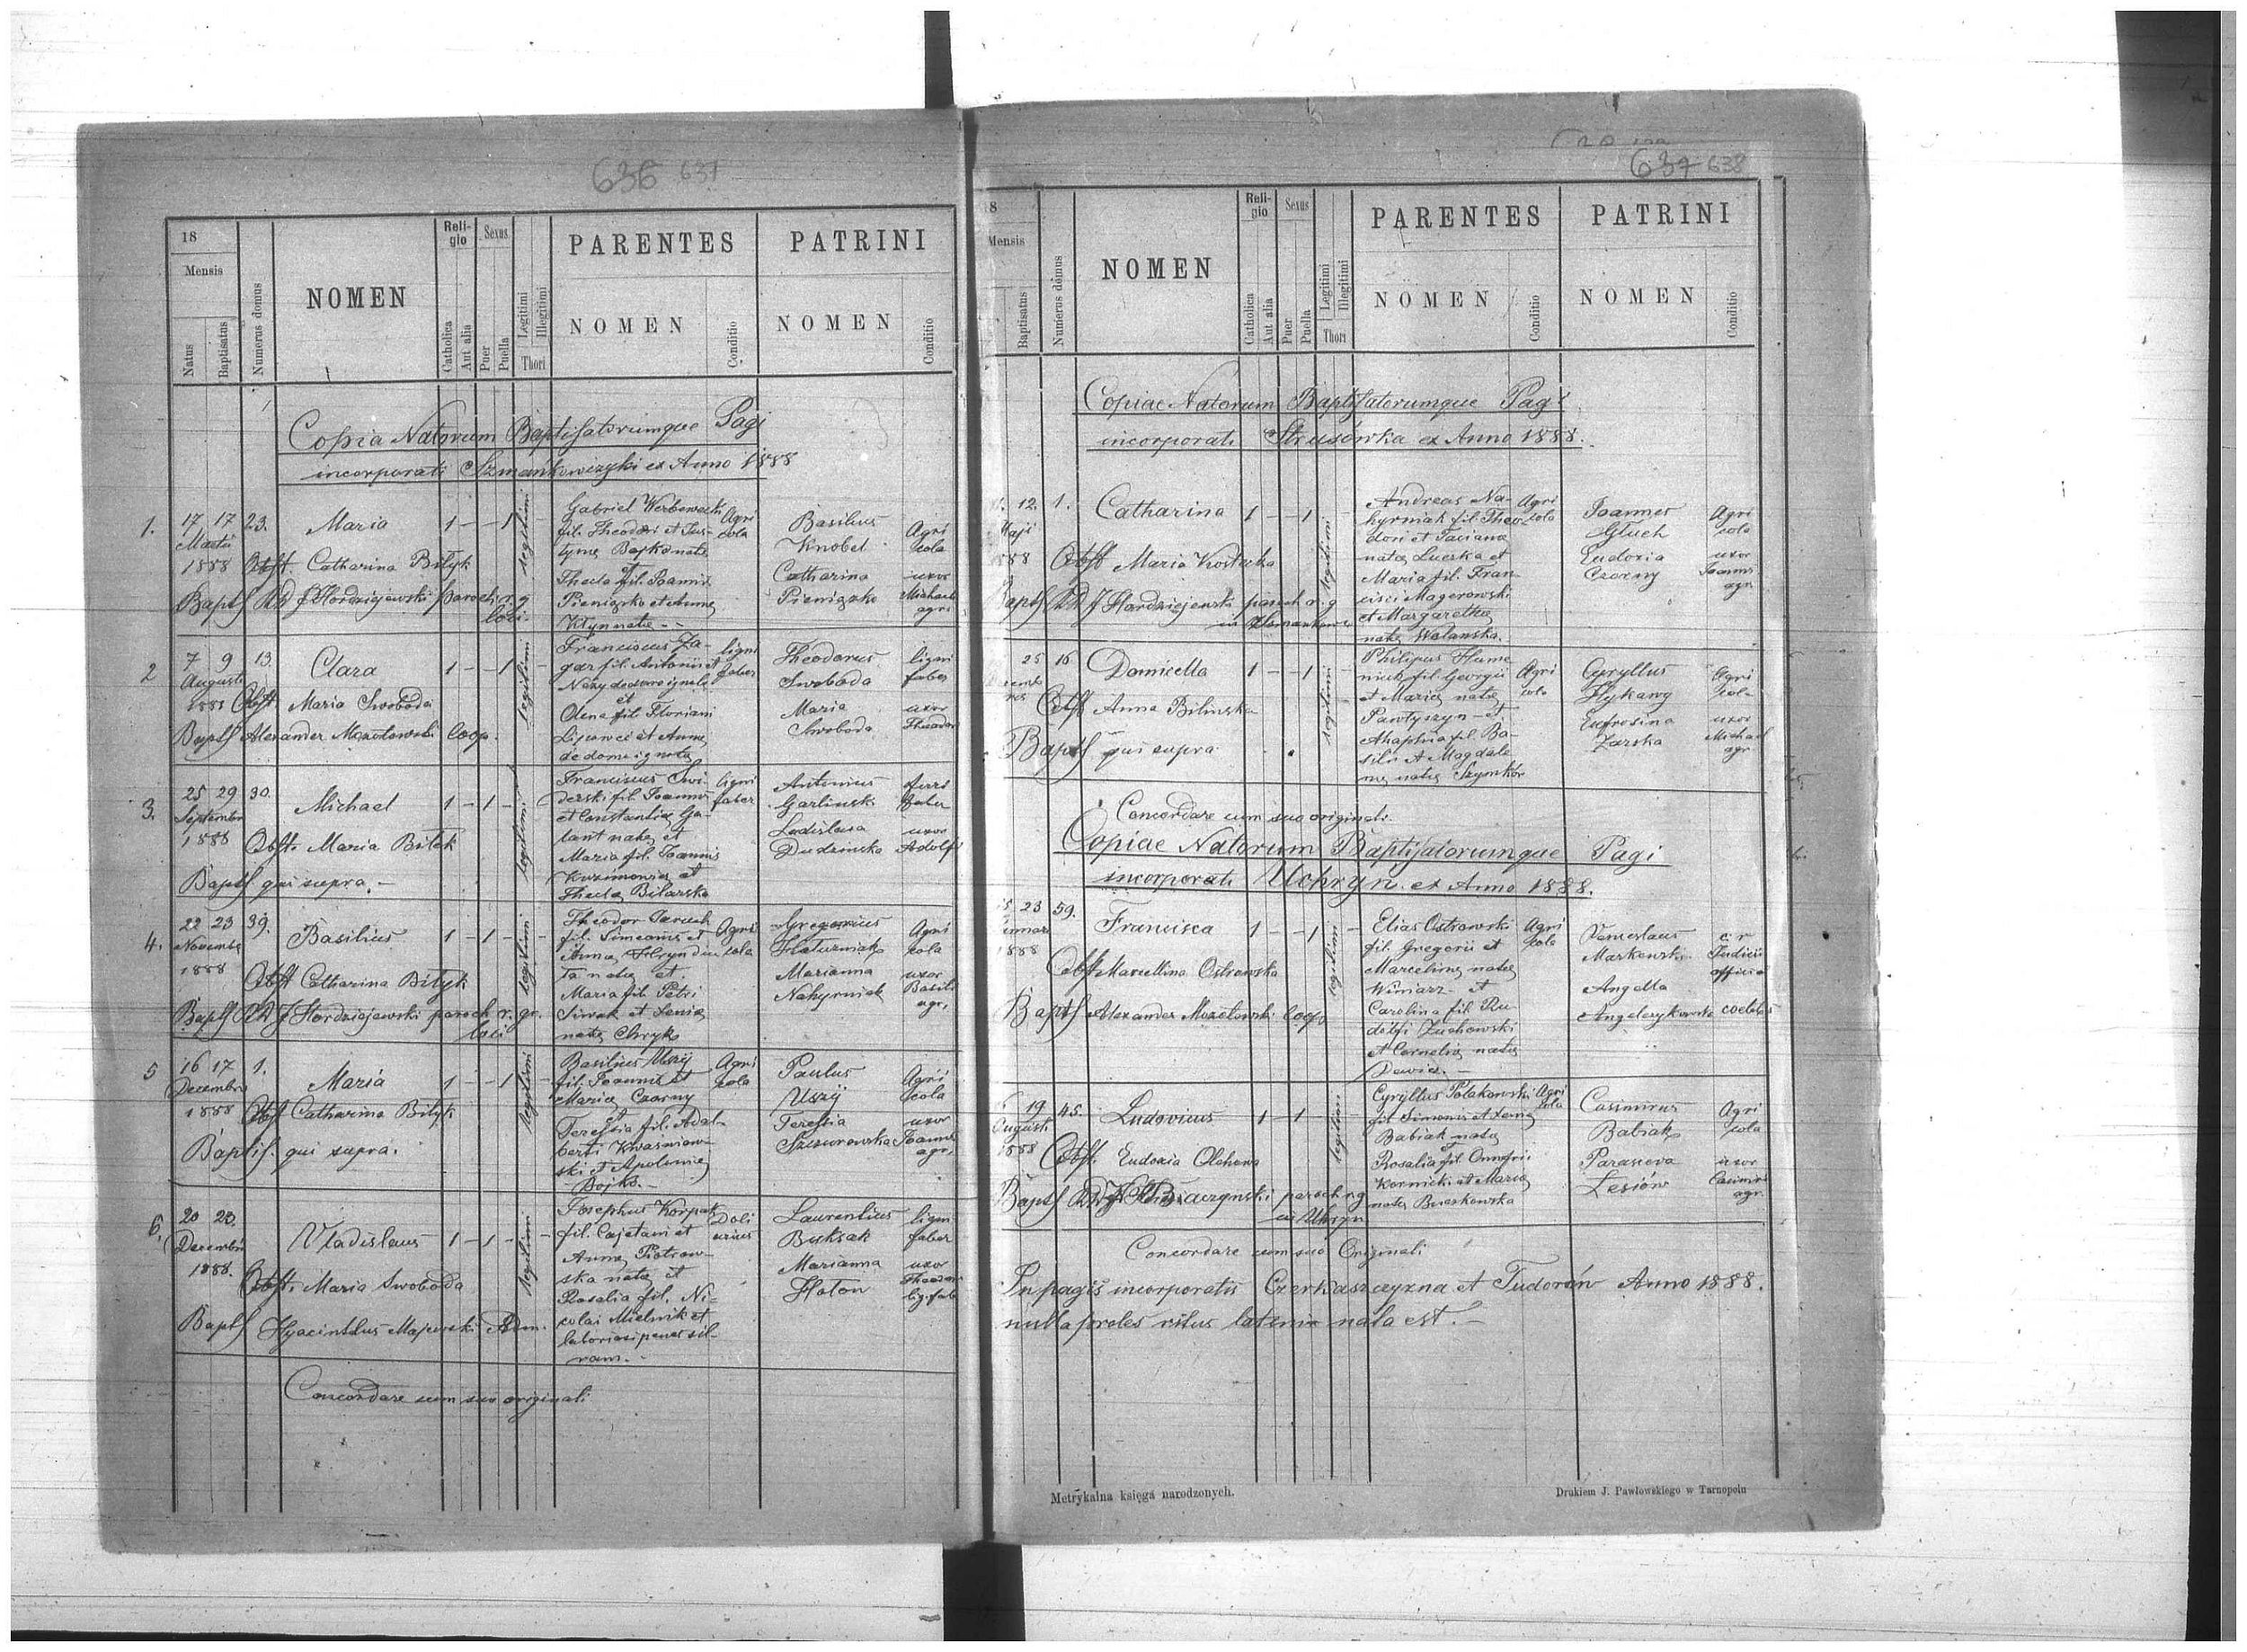 636 631
18
Mensis
Natus
Baptisatus
Numerus domus
NOMEN
Reli-
gio
Catholica
Aut alia
Sexus
Puer
Puella
Legitimi
Illegitimi
Thori
PARENTES
NOMEN
Conditio
PATRINI
NOMEN
Conditio
Copia Natorum Baptisatorumque Pagi
incorporati Szmankowczyki ex Anno 1888
1.
17 17 23.
Martii
1888
Maria
1 - - 1 -
legitimi
Obst. Catharina Bilyk
Bapts RD J Hordziejewski paroch r. g
loci.
Gabriel
fil. Theodori et Jus-
tyna Bojko nata
et
Thecla fil. Joannis
Pieniążko et Anna
natae
Agri
cola
Basilius
Knobel
Catharina
Pieniązko
Agri
cola
uxor
Michaelis
agri
2
7 9 13.
Augusti
1888
Clara
1 - - 1 -
legitimi
Obst. Maria Swoboda
Bapts Alexander Mozolowski Coop.
Franciscus Za-
gar fil. Antonii et
et
Olena fil. Floriani
et Anna
de domo ignota
ligni
faber
Theodorus
Swoboda
Maria
Swoboda
ligni
faber
uxor
Theodori
3.
25 29 30.
Septembris
1888
Michael
1 - 1 - -
legitimi
Obst. Maria Bilek
Bapts. qui supra.-
Franciscus Swi-
derski fil. Joannis
et Constantia Ga-
lant nata et
Maria fil. Joannis
et
Thecla Bilarska
ligni
faber
Antonius
Garlinski
Ladislava
Dudzinska
ferri
faber
uxor
Adolfi
4.
22 23 39.
Novembr
1888
Basilius
1 - 1 - -
legitimi
Obst Catharina Bilyk
Bapts RD J Hordziejewski paroch r. gr.
loci
Theodor
fil. Simeonis et
Anna
ta nata et
Maria fil. Petri
et Xenia
nata Chryk
Agri
cola
Gregorius
Marianna
Nahyrniak
Agri
cola
uxor
Basilii
agr.
5
16 17 1.
Decembris
1888
Maria
1 - - 1 -
legitimi
Obst Catharina Bilyk
Baptis. qui supra.
Basilius Uszij
fil. Joannis et
Maria Czorny
et
Teressia fil. Adal-
berti Kwasniow-
ski et Apolonia
Bojko.-
Agri
cola
Paulus
Uszij
Teressia
Szczurowska
Agri
cola
uxor
Joannis
agr.
6.
20 23.
Decembris
1888.
Vladislaus
1 - 1 - -
legitimi
Obst. Maria Swoboda
Bapts Hyacinthus Majewski Adm.
Josephus Korpak
fil. Cajetani et
Anna Piotrow-
ska nata et
Rosalia fil. Ni-
colai Mielnik et
Doli
arius
Laurentius
Buksak
Marianna
Hoton
ligni
faber
uxor
Concordare cum suo originali
637 638
8
Mensis
Baptisatus
Numerus domus
NOMEN
Reli-
gio
Catholica
Aut alia
Sexus
Puer
Puella
Legitimi
Illegitimi
Thori
PARENTES
NOMEN
Conditio
PATRINI
NOMEN
Conditio
Copiae Natorum Baptisatorumque Pagi
incorporati Strusówka ex Anno 1888.
12. 1.
Maji
888
Catharina
1 - - 1 -
legitimi
Obst Maria Kostecka
Bapts RD J Hordziejewski paroch r. g
in Szmankowce
Andreas Na-
hyrniak fil. Theo-
dori et Taciana
nata Lucska et
Maria fil. Fran-
cisci Magerowski
et Margaretha
nata Walanska.
Agri
cola
Joannes
Gluch
Eudoxia
Czorny
Agri
cola
uxor
Joannis
agr.
25 16
Domicella
1 - - 1 -
legitimi
Obst Anna Bilinska
Bapts qui supra
Philipus Hume
niuk fil. Georgii
et Maria nata
Pawlyszyn et
Ahaphia fil. Ba-
silii et Magdale
na nata Szymków
Agri
cola
Cyryllus
Hykawy
Eufrosina
Zarska
Agri
cola
uxor
Michael
agr.
Concordare cum suo originali.
Copiae Natorum Baptisatorumque Pagi
incorporati Uchryn ex Anno 1888.
23 59.
1888
Francisca
1 - - 1 -
legitimi
Obst Marcellina Ostrowska
Bapts Alexander Mozolowski Coop
Elias Ostrowski
fil. Gregorii et
Marcelina nata
Winiarz et
Carolina fil. Ru-
dolfi Zuchowski
et Cornelia nata
Dewicz.-
Agri
cola
Venceslaus
Markowski
Angella
c. r
Judicii
official
coelebs
19 45.
Augusti
1888
Ludovicus
1 - 1 - -
legitimi
Obst. Eudoxia Olehowa
paroch r g
in Uhryn
Cyryllus Polakowski
fil Simonis et Xenia
Babiak nata
et
Rosalia fil. Onufrii
Kornicki et Maria
nata
Agri
cola
Casimirus
Babiak
Parascva
Lesiów
Agri
cola
uxor
Casimiri
agr.
Concordare cum suo Originali
In pagis incorporatis Czerkaszczyzna et Tudorów Anno 1888.
nulla proles ritus latini nata est.-
Metrykalna księga narodzonych.
Drukiem J. Pawłowskiego w Tarnopolu